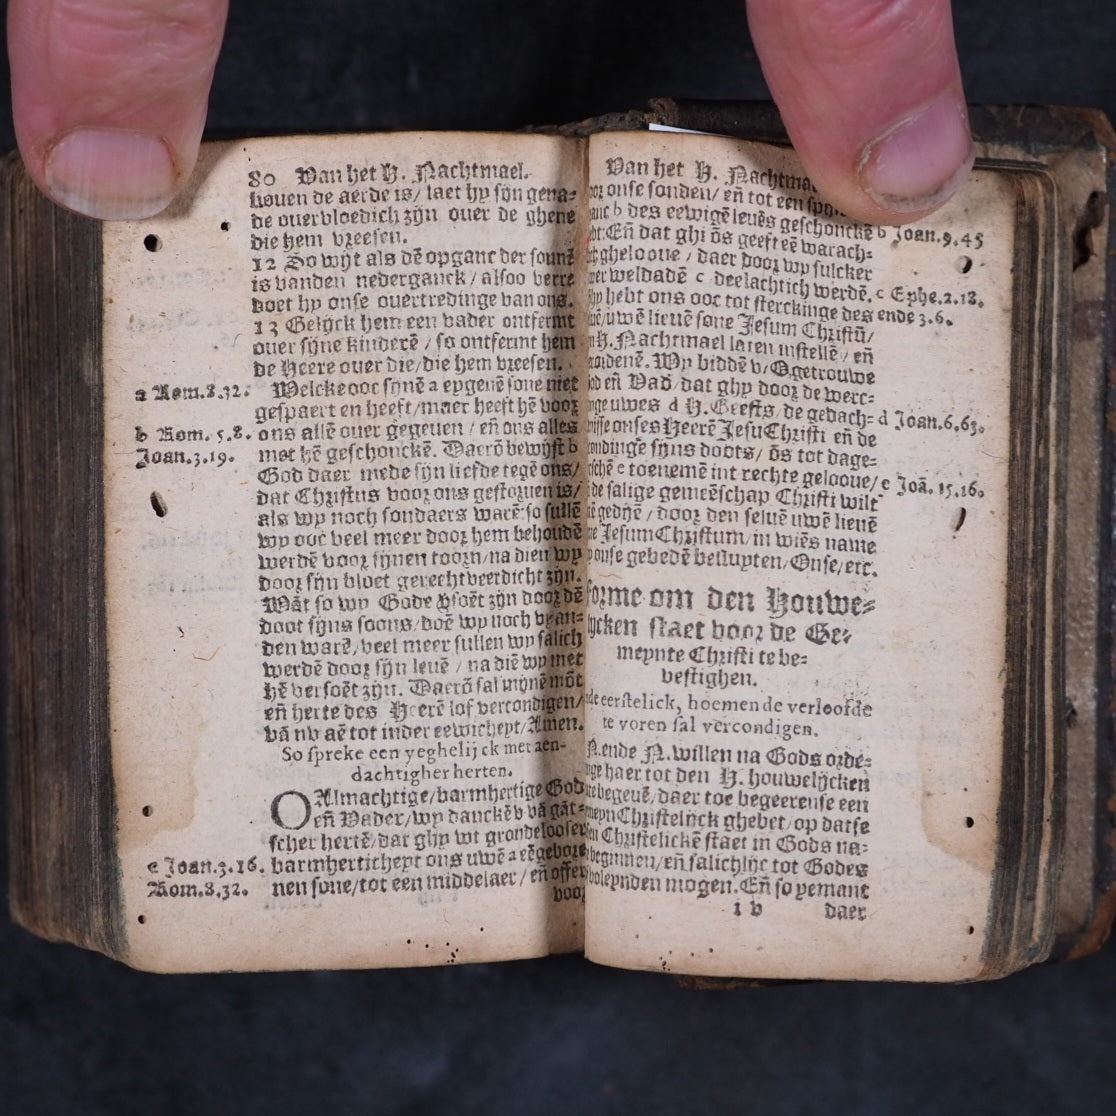 80 Van het H. Nachtmael.
houen de aerde is/ laet hy sijn gena-
de ouervloedich zijn ouer de ghene
die hem vreesen.
12 So wijt als dē opganc der sonnē
is vanden nederganck / alsoo verre
doet hy onse ouertredinge van ons.
13 Gelijck hem een vader ontfermt
ouer sijne kinderē / so ontfermt hem
de Heere ouer die/die hem vreesen.
a Rom.8.32. Welcke ooc sijnē a eygenē sone niet
gespaert en heeft/maer heeft hē voor
b Rom. 5.8. ons allē ouer gegeuen / eñ ons alles
Joan.3.19. met hē geschonckē. Daerō bewijst b
God daer mede sijn liefde tegē ons/
dat Christus voor ons gestoruen is/
als wy noch sondaers warē: so sullē
wy ooc veel meer door hem behoudē
werdē voor sijnen toorn/na dien wy
door sijn bloet gerechtveerdicht zijn.
Wāt so wy Gode ꝟsoēt zijn door dē
doot sijns soons/doē wy noch vyan-
den warē/veel meer sullen wy salich
werdē door sijn leuē / na diē wy met
hē versoēt zijn. Daerō sal mijnē mōt
eñ herte des Heerē lof vercondigen/
vā nv aē tot inder eewicheyt/Amen.
So spreke een yeghelijck met aen-
dachtigher herten.
O Almachtige/barmhertige God
eñ Vader/wy danckē v vā gāt-
scher hertē/dat ghy wt grondelooser
c Joan.3.16. barmherticheyt ons uwē a eēgebore-
Rom.8.32. nen sone/tot een middelaer / eñ offer
voor
Van het H. Nachtmael
voor onse sonden/ eñ tot een
b des eewigē leuēs geschonckē b Joan.9.45
Eñ dat ghi ōs geeft eē warach-
gheloove / daer door wy sulcker
weldadē c deelachtich werdē. c Ephe.2.18.
hebt ons ooc tot sterckinge des ende 3.6.
uwē lieuē sone Jesum Christū/
H. Nachtmael laten instellē / eñ
Wy biddē v/O getrouwe
God eñ Vad/dat ghy door de werc-
uwes d H. Geests/de gedach- d Joan.6.63.
onses Heerē Jesu Christi eñ de
sijns doots/ ōs tot dage-
e toenemē int rechte gelooue/ e Joā. 15.16.
de salige gemeēschap Christi wilt
gedijē / door den seluē uwē lieuē
Jesum Christum/in wiēs name
onse gebedē besluyten/Onse/etc.
forme om den Houwe-
lycken staet voor de Ge-
meynte Christi te be-
vestighen.
eerstelick, hoemen de verloofde
te voren sal vercondigen.
N. ende N. willen na Gods orde-
haer tot den H. houwelijcken
begeuē/daer toe begeerense een
Christelijck ghebet/op datse
Christelickē staet in Gods na-
beginnen/eñ salichlijc tot Godes
voleynden mogen. Eñ so yemant
l v daer